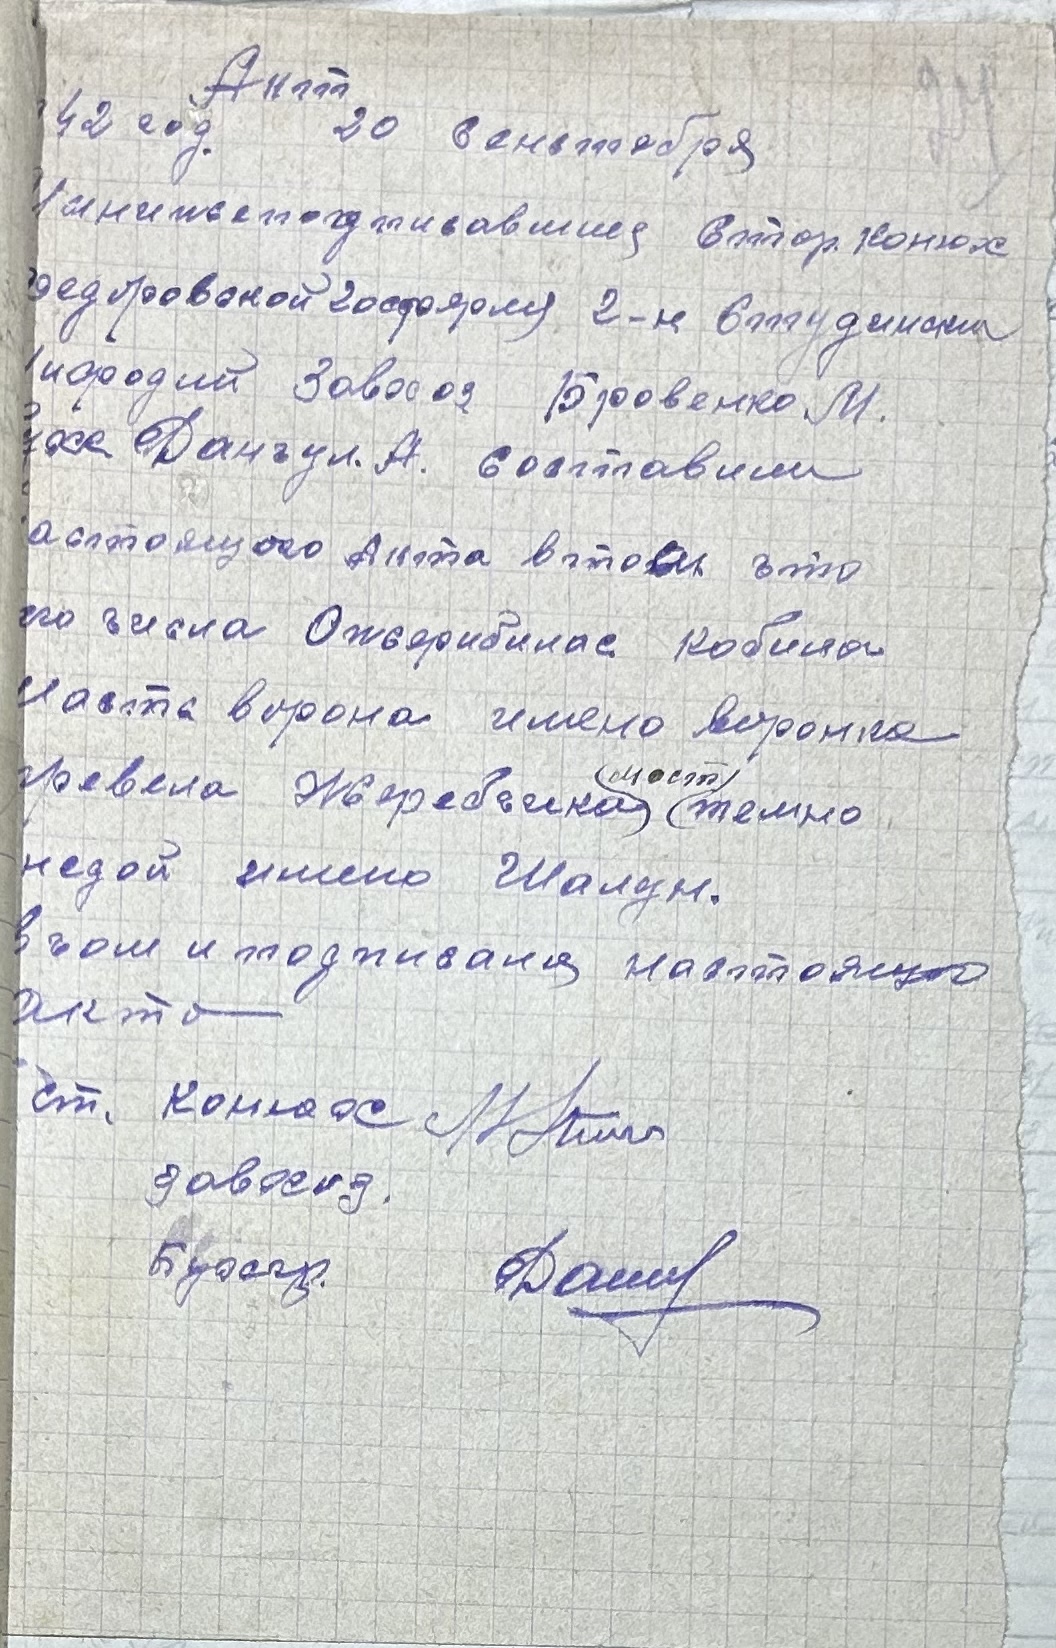 Акт
42 год. 20 сеньтября
нижеподписавшия Стар. Конюх
госфермя 2-н Студински
Завхоз Бровенко М.
Данчул. А. составили
астоящого Акта втом что
го числа Ожерибилас кобила
Масть ворона имено Воронка
превела Жеребчика (маст)
(темно
недой имено Шалун.
вчом и подписаля настоящо
акто
Ст. Конюх
Завхоз.
Бухг.